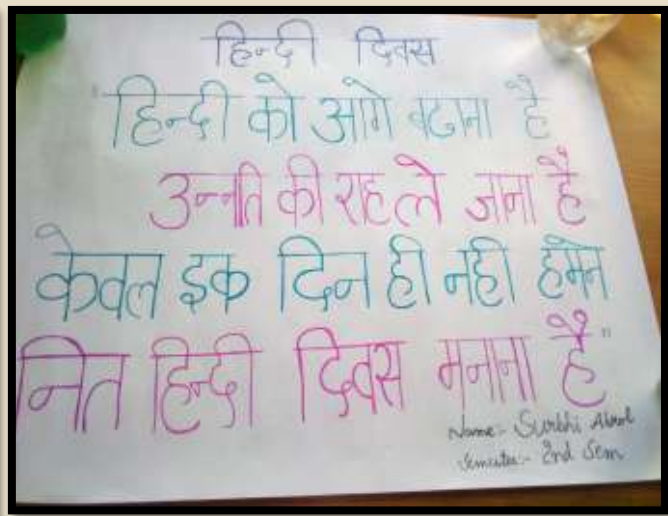 हिन्दी दिवस
"हिन्दी को आगे बढाना है
उन्नति की राह ले जाना है
केवल इक दिन ही नही हमने
नित हिन्दी दिवस मनाना है"
Name:- Surbhi Abrol
Semester:- 2nd Sem